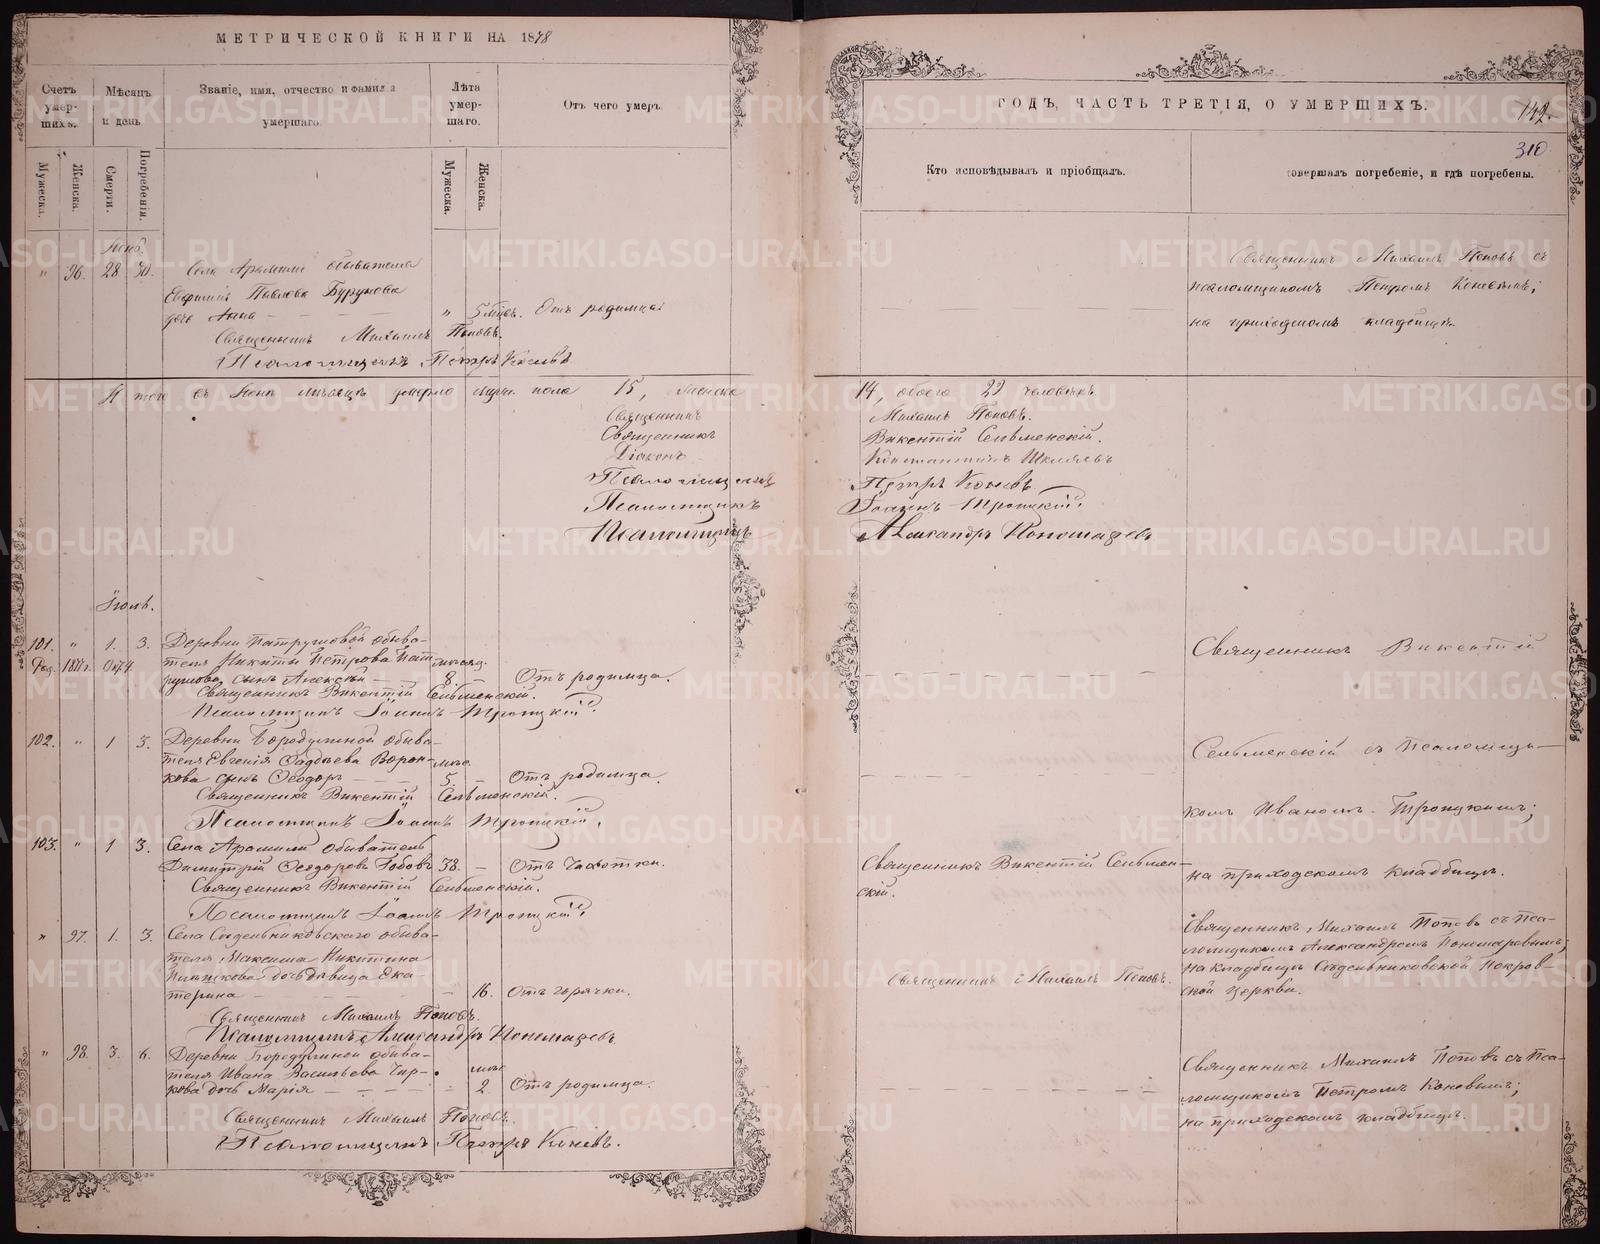 МЕТРИЧЕСКОЙ КНИГИ НА 1878
Счетъ умершихъ.
Мѣсяцъ и день
Званіе, имя, отчество и фамилія умершаго.
Лѣта умершаго.
Отъ чего умеръ.
Мужеска.
Женска.
Смерти.
Погребенія.
Мужеска.
Женска.
96. 28. 30. Села Арамили обывателя
Павлова
дочь Анна " 5 Отъ родимца
Священникъ Михаилъ Поповъ.
Псаломщикъ Петръ Коневъ
Итого въ мѣсяцѣ умерло пола 15, женска
Священникъ
Священникъ
Діаконъ
Псаломщикъ
Псаломщикъ
Псаломщикъ
101. " 1. 3. Деревни Патрушевой обыва-
теля Никиты Петрова Пат-
рушева сынъ Алексѣй 8. Отъ родимца.
Священникъ Викентій Сельменскій.
Псаломщикъ Іоаннъ Троицкій.
102. " 1 3. Деревни Бородулиной обыва-
теля Евгенія Ворон-
кова сынъ Ѳеодоръ 5. Отъ родимца.
Священникъ Викентій Сельменскій.
Псаломщикъ Іоаннъ Троицкій.
103. " 1 3. Села Арамили обыватель
Димитрій Ѳеодоровъ 38. Отъ чахотки.
Священникъ Викентій Сельменскій.
Псаломщикъ Іоаннъ Троицкій.
" 97. 1. 3. Села Сысертьниковскаго обыва-
теля Максима Никитина
дочь дѣвица Ека-
терина 16. Отъ горячки.
Священникъ Михаилъ Поповъ.
Псаломщикъ Александръ Пономаревъ
" 98. 3. 6. Деревни Бородулиной обыва-
теля Ивана Васильева Чир-
кова дочь Марія 2 Отъ родимца.
Священникъ Михаилъ Поповъ.
Псаломщикъ Петръ Коневъ.
ГОДЪ, ЧАСТЬ ТРЕТІЯ, О УМЕРШИХЪ.
142.
310.
Кто исповѣдывалъ и пріобщалъ.
совершалъ погребеніе, и гдѣ погребены.
Священникъ Михаилъ Поповъ съ
псаломщикомъ Петромъ Коневымъ;
на приходскомъ кладбищѣ.
14, обоего 29 человѣкъ
Михаилъ Поповъ.
Викентій Сельменскій.
Константинъ
Петръ Коневъ
Іоаннъ Троицкій.
Александръ Пономаревъ
Священникъ Викентій
Сельменскій съ псаломщи-
комъ Иваномъ Троицкимъ;
на приходскомъ кладбищѣ.
Священникъ Викентій Сельмен-
скій.
Священникъ Михаилъ Поповъ съ пса-
ломщикомъ Александромъ Пономаревымъ;
на кладбищѣ Покров-
ской церкви.
Священникъ Михаилъ Поповъ.
Священникъ Михаилъ Поповъ съ пса-
ломщикомъ Петромъ Коневымъ;
на приходскомъ кладбищѣ.
METRIKI.GASO-URAL.RU